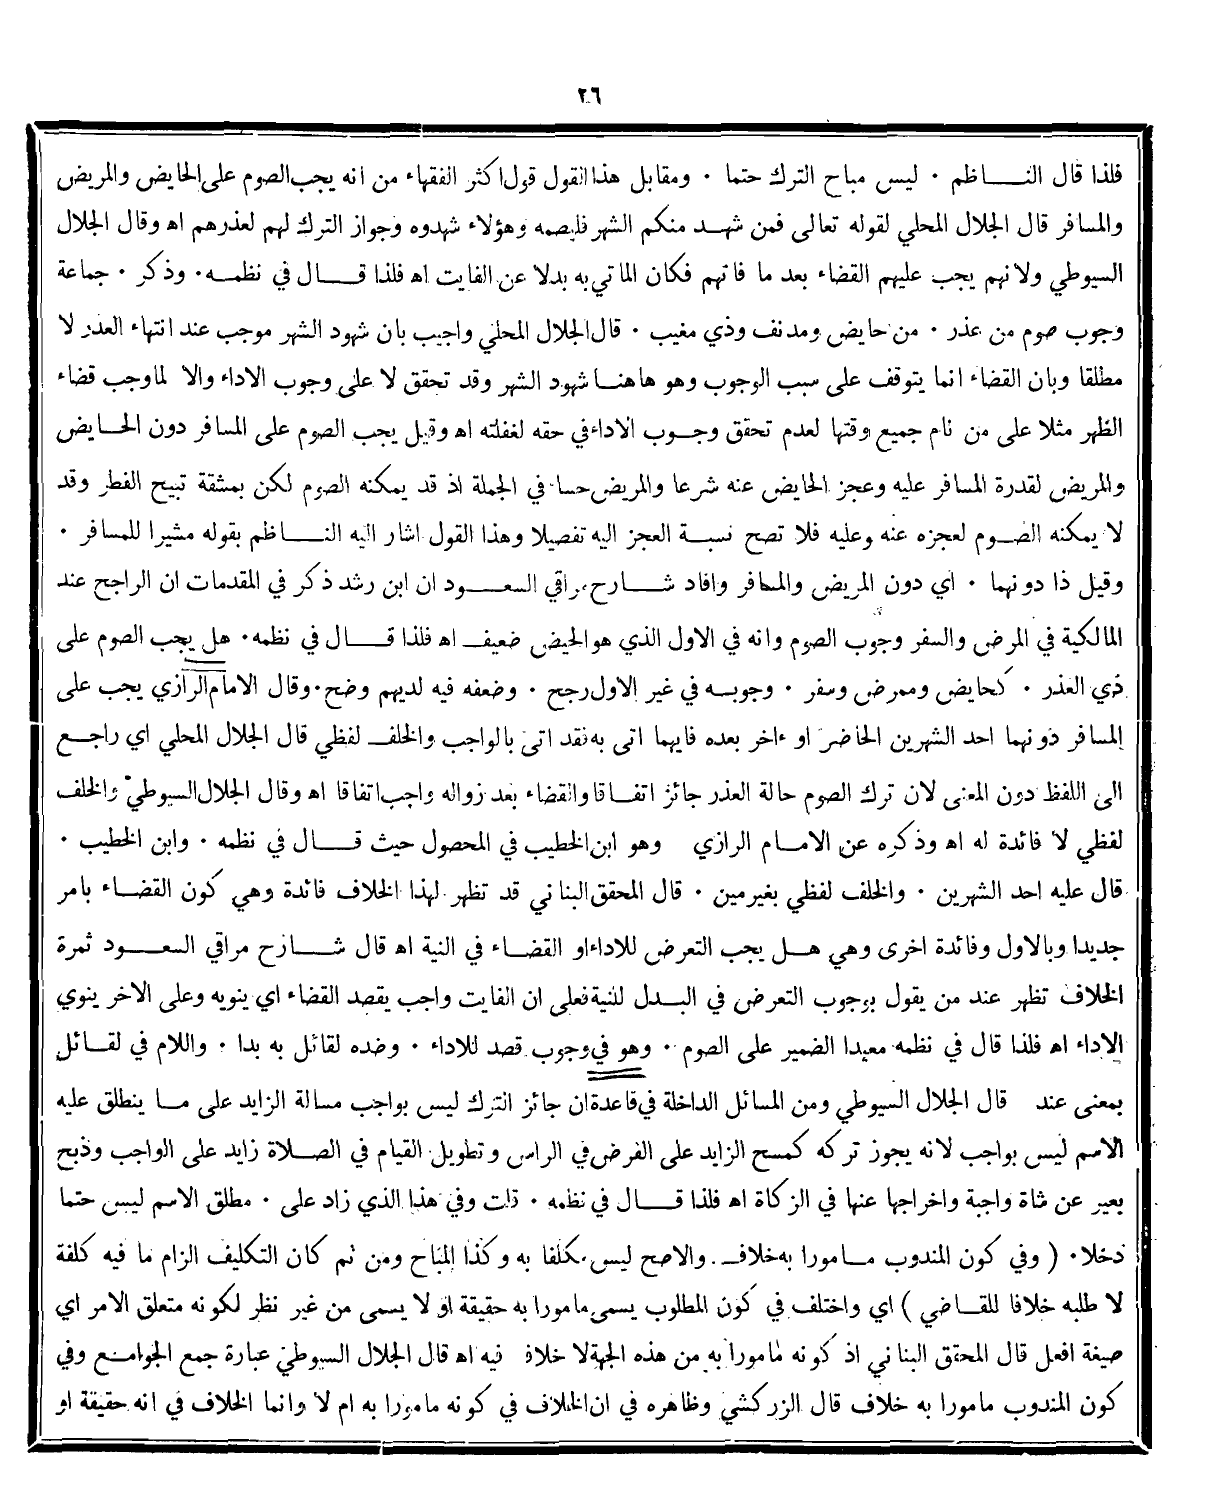 ٢٦
فلذا قال الناظم ٠ ليس مباح الترك حتما ٠ ومقابل هذا القول قول اكثر الفقهاء من انه يجب الصوم على الحايض والمريض
والمسافر قال الجلال المحلي لقوله تعالى فمن شهد منكم الشهر فليصمه وهؤلاء شهدوه وجواز الترك لهم لعذرهم اه وقال الجلال
السيوطي ولانهم يجب عليهم القضاء بعد ما فاتهم فكان الماتي به بدلا عن الفايت اه فلذا قال في نظمه ٠ وذكر ٠ جماعة
وجوب صوم من عذر ٠ من حايض ومدنف وذي مغيب ٠ قال الجلال المحلي واجيب بان شهود الشهر موجب عند انتهاء العذر لا
مطلقا وبان القضاء انما يتوقف على سبب الوجوب وهو هاهنا شهود الشهر وقد تحقق لا على وجوب الاداء والا لما وجب قضاء
الظهر مثلا على من نام جميع وقتها لعدم تحقق وجوب الاداء في حقه لغفلته اه وقيل يجب الصوم على المسافر دون الحايض
والمريض لقدرة المسافر عليه وعجز الحايض عنه شرعا والمريض حسا في الجملة اذ قد يمكنه الصوم لكن بمشقة تبيح الفطر وقد
لا يمكنه الصوم لعجزه عنه وعليه فلا تصح نسبة العجز اليه تفصيلا وهذا القول اشار اليه الناظم بقوله مشيرا للمسافر ٠
وقيل ذا دونهما ٠ اي دون المريض والمسافر وافاد شارح مراقي السعود ان ابن رشد ذكر في المقدمات ان الراجح عند
المالكية في المرض والسفر وجوب الصوم وانه في الاول الذي هو الحيض ضعيف اه فلذا قال في نظمه ٠ هل يجب الصوم على
ذي العذر ٠ كحايض وممرض وسفر ٠ وجوبه في غير الاول رجح ٠ وضعفه فيه لديهم وضح ٠ وقال الامام الرازي يجب على
المسافر دونهما احد الشهرين الحاضر او ءاخر بعده فايهما اتى به فقد اتى بالواجب والخلف لفظي قال الجلال المحلي اي راجع
الى اللفظ دون المعنى لان ترك الصوم حالة العذر جائز اتفاقا والقضاء بعد زواله واجب اتفاقا اه وقال الجلال السيوطي والخلف
لفظي لا فائدة له اه وذكره عن الامام الرازي وهو ابن الخطيب في المحصول حيث قال في نظمه ٠ وابن الخطيب ٠
قال عليه احد الشهرين ٠ والخلف لفظي بغير مين ٠ قال المحقق البناني قد تظهر لهذا الخلاف فائدة وهي كون القضاء بامر
جديدا وبالاول وفائدة اخرى وهي هل يجب التعرض للاداء او القضاء في النية اه قال شارح مراقي السعود ثمرة
الخلاف تظهر عند من يقول بوجوب التعرض في البدل للنية فعلى ان الفايت واجب يقصد القضاء اي ينويه وعلى الاخر ينوي
الاداء اه فلذا قال في نظمه معيدا الضمير على الصوم ٠ وهو في وجوب قصد للاداء ٠ وضده لقائل به بدا ٠ واللام في لقائل
بمعنى عند قال الجلال السيوطي ومن المسائل الداخلة في قاعدة ان جائز الترك ليس بواجب مسالة الزايد على ما ينطلق عليه
الاسم ليس بواجب لانه يجوز تركه كمسح الزايد على الفرض في الراس وتطويل القيام في الصلاة زايد على الواجب وذبح
بعير عن شاة واجبة واخراجها عنها في الزكاة اه فلذا قال في نظمه ٠ قلت وفي هذا الذي زاد على ٠ مطلق الاسم ليس حتما
دخلا ٠ ( وفي كون المندوب مامورا به خلاف ٠ والاصح ليس مكلفا به وكذا المباح ومن ثم كان التكليف الزام ما فيه كلفة
لا طلبه خلافا للقاضي ) اي واختلف في كون المطلوب يسمى مامورا به حقيقة او لا يسمى من غير نظر لكونه متعلق الامر اي
صيغة افعل قال المحقق البناني اذ كونه مامورا به من هذه الجهة لا خلاف فيه اه قال الجلال السيوطي عبارة جمع الجوامع وفي
كون المندوب مامورا به خلاف قال الزركشي وظاهره في ان الخلاف في كونه مامورا به ام لا وانما الخلاف في انه حقيقة او